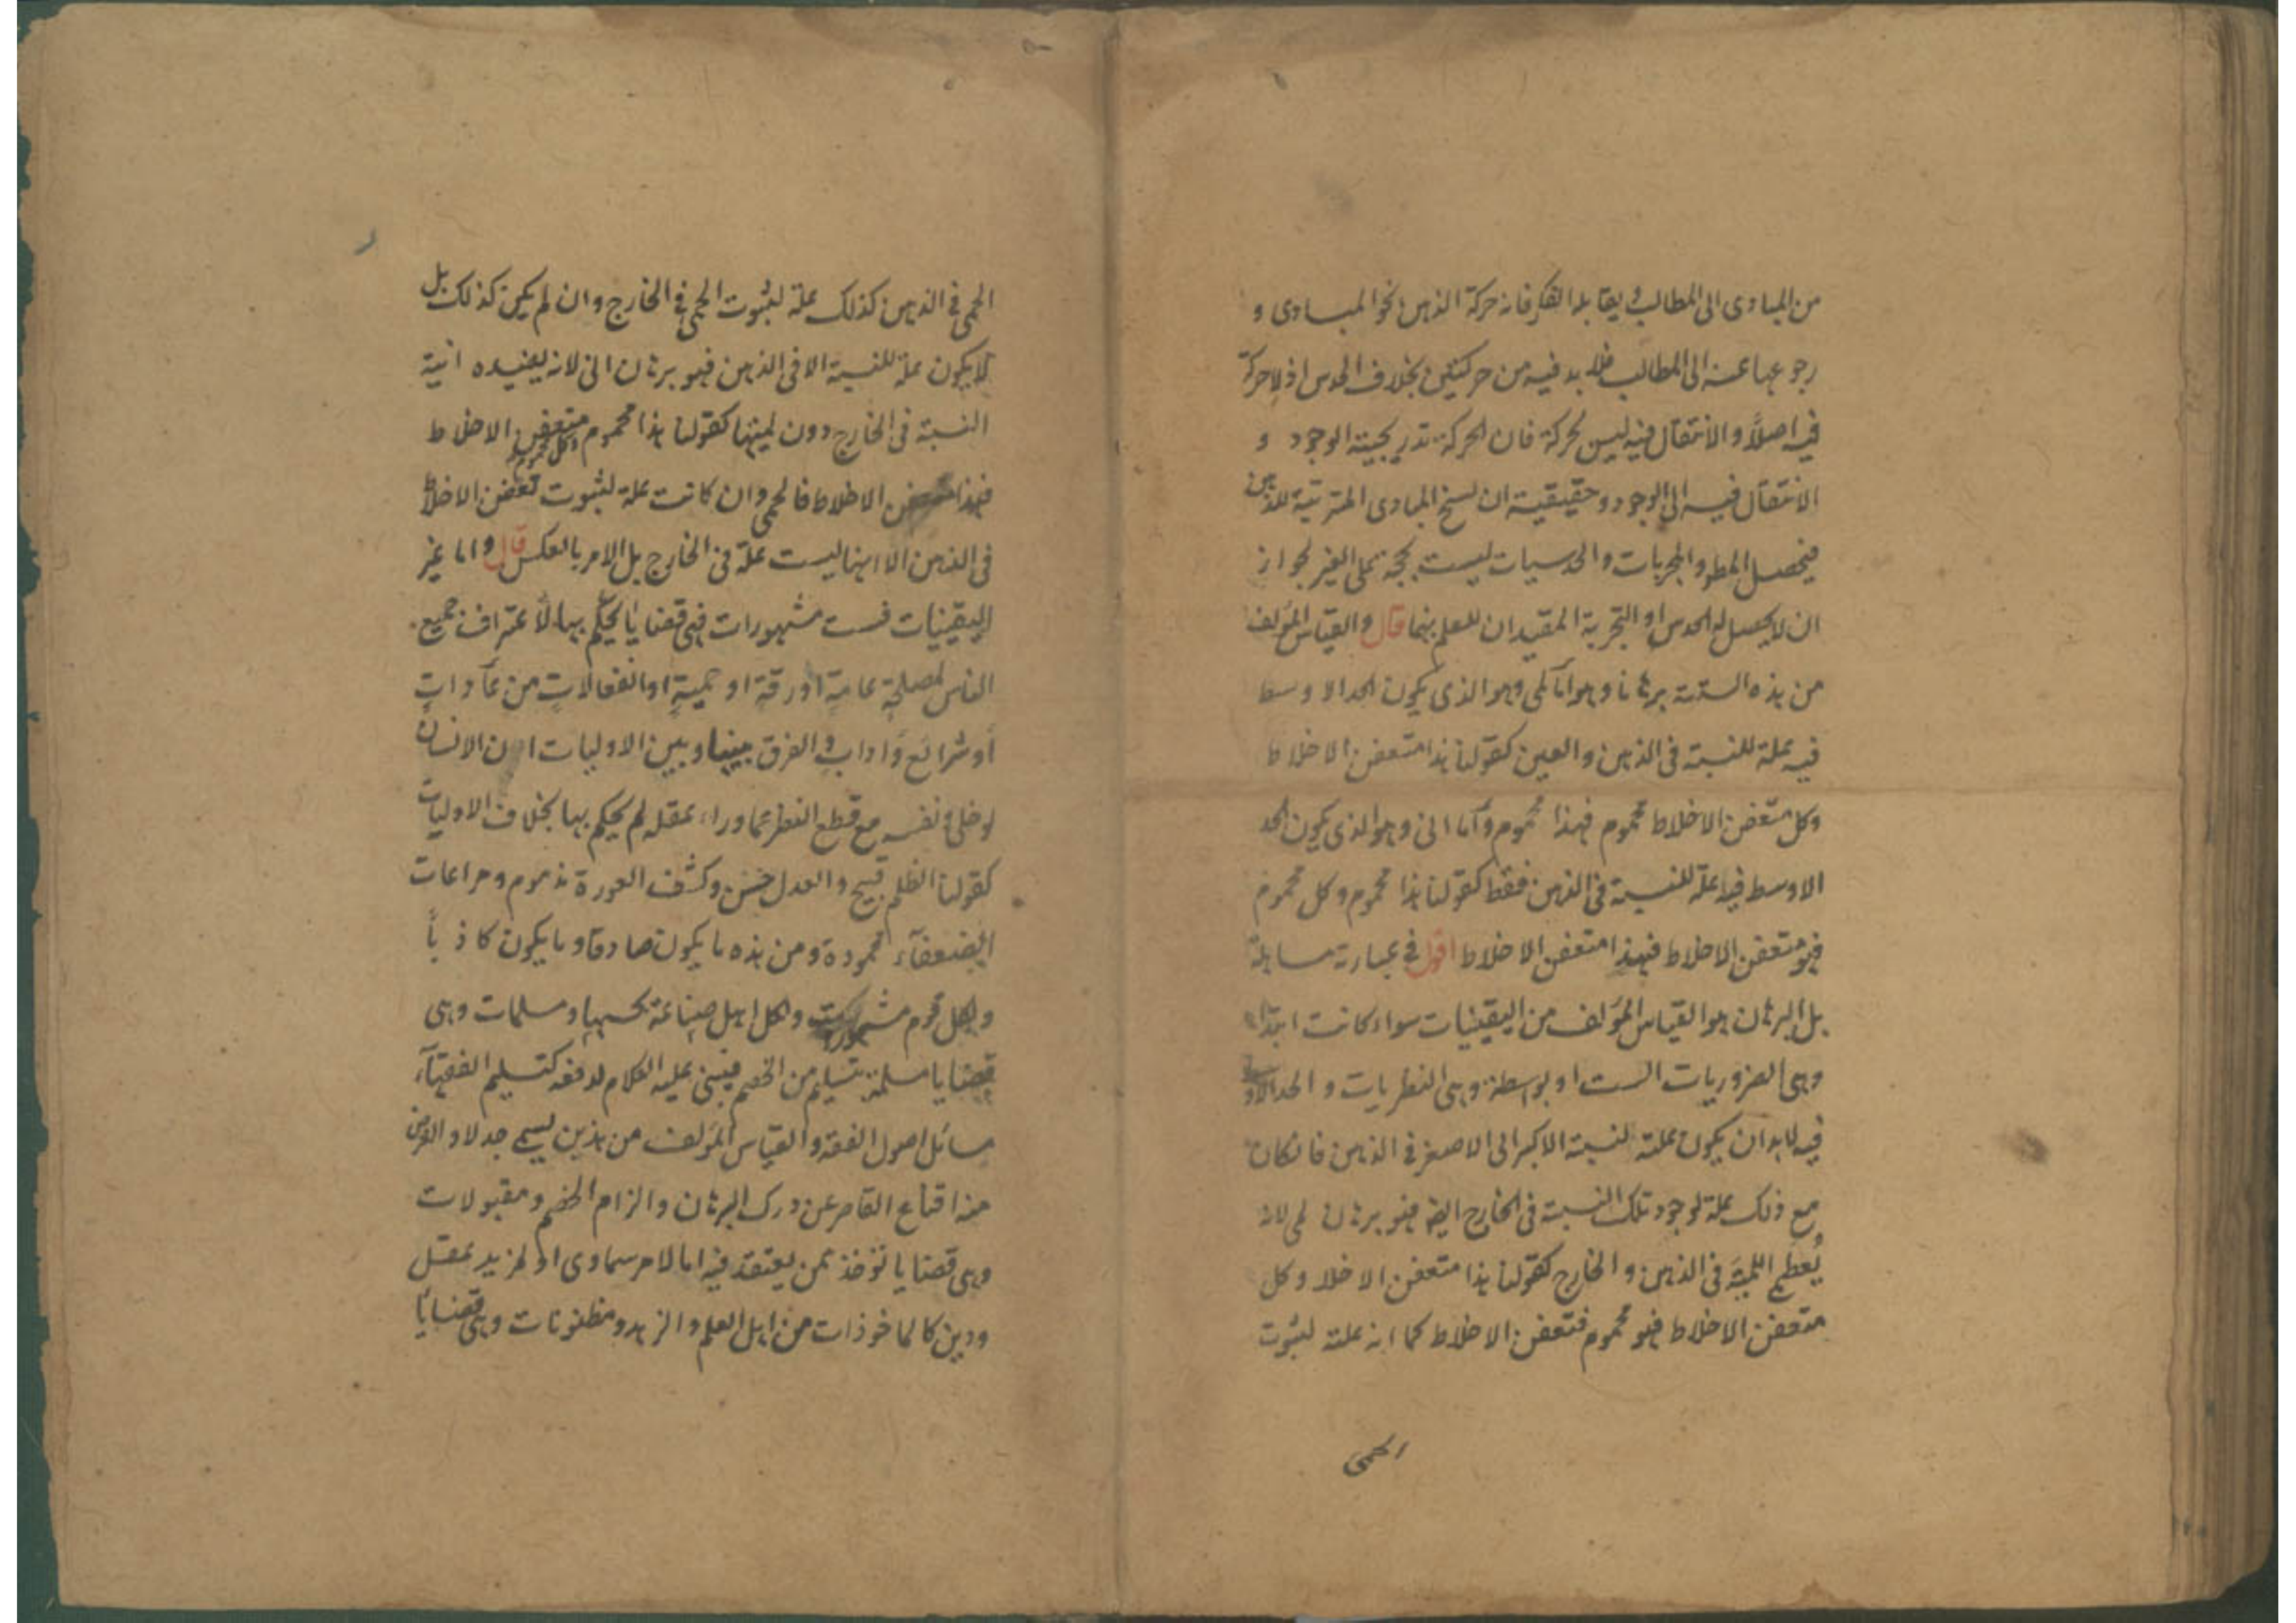 من المبادى الى المطالب و يقابله الفكر فانه حركة الذهن نحو المبادى و
رجوعها عنه الى المطالب فلا بد فيه من حركتين بخلاف الحدس اذ لا حركة
فيه اصلاً و الانتقال فيه ليس بحركة فان الحركة تدريجية الوجود و
الانتقال فيه الى الوجود و حقيقية ان تسنح المبادى المترتبة للذهن
فيحصل المط و المجربات و الحدسيات ليست بحجة على الغير لجواز
ان لا يحصل له الحدس او التجربة المفيدان للعلم بهما قال و القياس المؤلف
من هذه الستة برهانا و هو اما لمى و هو الذى يكون الحد الاوسط
فيه علة للنسبة فى الذهن و العين كقولنا هذا متعفن الاخلاط
وكل متعفن الاخلاط محموم فهذا محموم و اما انى و هو الذى يكون الحد
الاوسط فيه علة للنسبة فى الذهن فقط كقولنا هذا محموم و كل محموم
فهو متعفن الاخلاط فهذا متعفن الاخلاط اقول فى عبارته مساهلة
بل البرهان هو القياس المؤلف من اليقينيات سواء كانت ابتداء
وهى الضروريات الست او بواسطة وهى النظريات و الحد الاوسط
فيه لا بد ان يكون علة لنسبة الاكبر الى الاصغر فى الذهن فانكان
مع ذلك علة لوجود تلك النسبة فى الخارج ايضا فهو برهان لمى لانه
يُعطى اللمية فى الذهن و الخارج كقولنا هذا متعفن الاخلا و كل
متعفن الاخلاط فهو محموم فتعفن الاخلاط كما انه علة لثبوت
الحمى
الحمى فى الذهن كذلك علة لثبوت الحمى فى الخارج و ان لم يكن كذلك بل
لا يكون علة للنسبة الا فى الذهن فهو برهان انى لانه يفيده انية
النسبة فى الخارج دون لميتها كقولنا هذا محموم وكل محموم متعفن الاخلاط
فهذا متعفن الاخلاط فالحمى و ان كانت علة لثبوت تعفن الاخلاط
فى الذهن الا انها ليست علة فى الخارج بل الامر بالعكس قال و اما غير
اليقينيات فست مشهورات فهى قضايا يحكم بها لاعتراف جميع
الناس لمصلحةٍ عامةٍ او رقةٍ او حميةٍ او انفعالاتٍ من عاداتٍ
او شرائع و ادابٍ و الفرق بينها و بين الاوليات ان الانسان
لو خلى و نفسه مع قطع النظر عما وراء عقله لم يحكم بها بخلاف الاوليات
كقولنا الظلم قبيح و العدل حسن و كشف العورة مذموم و مراعات
الضعفآء محمودة و من هذه ما يكون صادقا و ما يكون كاذباً
ولكل قوم مشهورات و لكل اهل صناعة بحسبها و مسلمات و هى
قضايا مسلمة تتسلم من الخصم فيبنى عليه الكلام لدفعه كتسليم الفقهآء
مسائل اصول الفقه و القياس المؤلف من هذين يسمى جدلا و الغرض
منه اقناع القاصر عن درك البرهان و الزام الخصم و مقبولات
وهى قضايا تؤخذ عمن يعتقد فيه اما لامر سماوى او لمزيد عقل
ودين كالماخوذات من اهل العلم و الزهد و مظنونات و هى قضايا